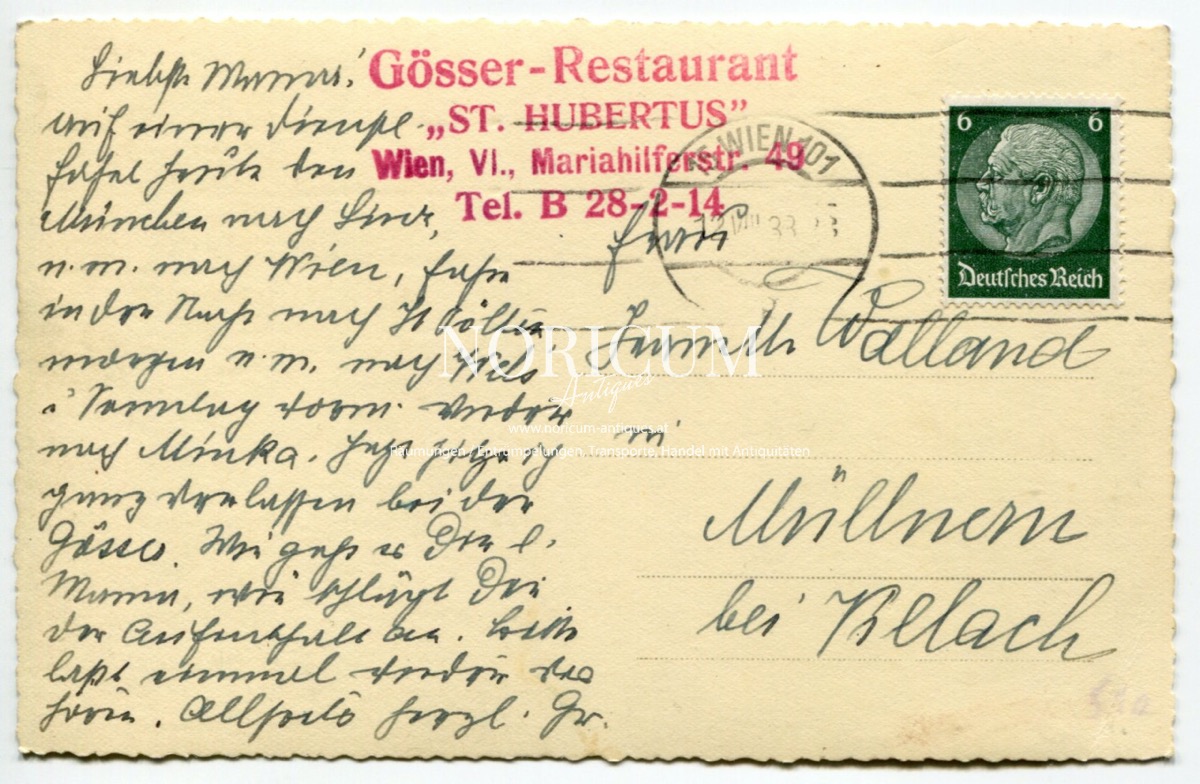 Liebste Mama!
Auf einer Dienst
heute von
München nach Linz,
n.m. nach Wien, fahre
in der Nacht nach St Pölten
morgen n.m. nach Wels
u Sonntag vorm. wieder
nach Minka. Jetzt sitze ich
ganz verlassen bei der
Gösser. Wie geht es Dir l.
Mama, wie schlägt Dir
der Aufenthalt an. Bitte
laßt einmal wieder was
hören. Allseits herzl. Gr.
Gösser-Restaurant
„ST. HUBERTUS”
Wien, VI., Mariahilferstr. 49
Tel. B 28-2-14
WIEN 101
6 6
Deutsches Reich
Frau
Walland
in
Müllnern
bei Villach
NORICUM
Antiques
www.noricum-antiques.at
Räumungen / Entrümpelungen, Transporte, Handel mit Antiquitäten